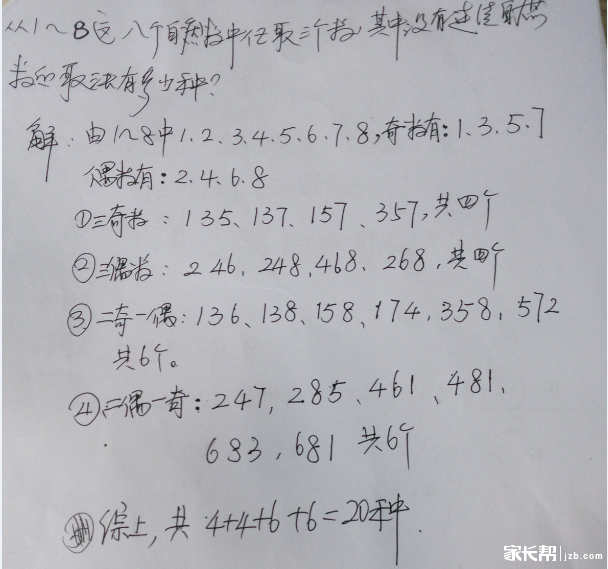 从1～8这八个自然数中任取三个数,其中没有连续自然
数的取法有多少种?
解:由1～8中1.2.3.4.5.6.7.8,奇数有:1.3.5.7
偶数有:2.4.6.8
①三奇数:135、137、157、357,共四个
②三偶数:246,248,468、268,共四个
③二奇一偶:136、138、158、174,358,572
共6个。
④二偶一奇:247,285、461、481、
683,681 共6个
综上,共4+4+6+6=20种.
家长帮 jzb.com